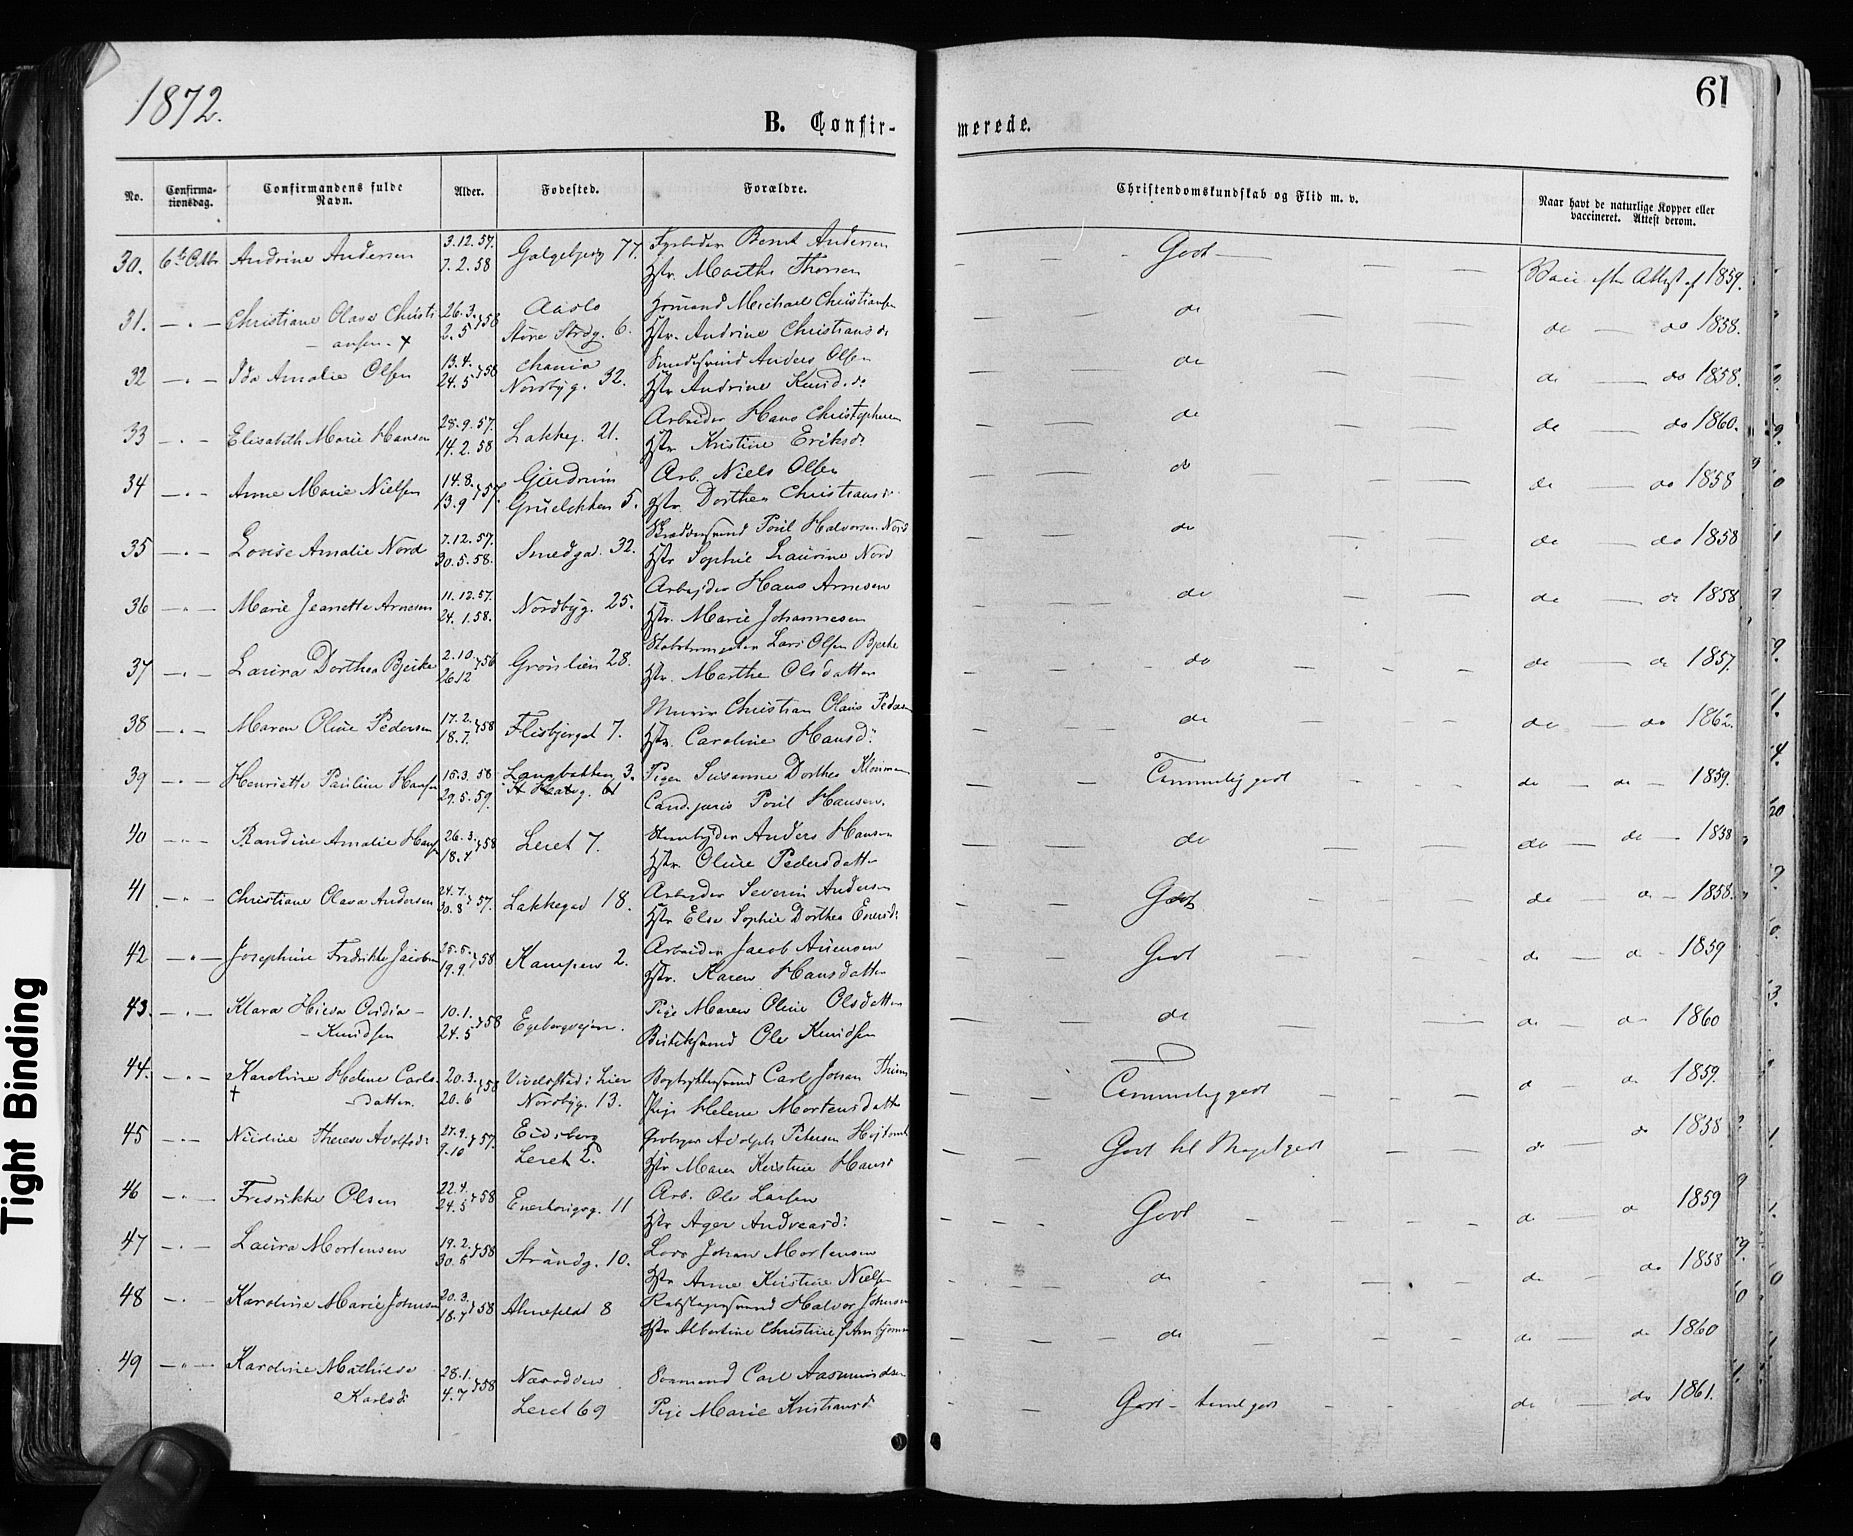 1872.
61
B. Confir-
merede.
No.
Confirma-
tionsdag.
Confirmandens fulde
Navn.
Alder.
Fødested.
Forældre.
Christendomskundskab og Flid m. v.
Naar havt de naturlige Kopper eller
vaccineret. Attest derom.
30. Andrine Andersen 3.12.57. 7.2.58 Galgebjerg 77. Bernt Andersen
Hstr. Marthe Thorsen
Godt
Vacc. efter Attest af 1859.
31. Christiane Olava Christi- 26.3. 2.5 58 Aaslo Michael Christiansen
ansen. x Store Strdg. 6. Hstr. Andrine Christiansd.
do do do 1858.
32 Ida Amalie Olsen 13.4. 24.5 58 Chania Anders Olsen
Nordbyg. 32. Hstr. Andrine Knudsd.
do do do 1858.
33 Elisabeth Marie Hansen 28.9.57. 14.2.58 Lakkeg. 21. Arbeider Hans Christophersen
Hstr. Kristine Eriksd.
do do do 1860.
34 Anne Marie Nielsen 14.8. 13.9 57. Gjerdrum Arb. Niels Olsen
Grüeløkken 5. Hstr. Dorthea Christiansd.
do do do 1858
35 Lovise Amalie Nord 7.12.57. 30.5.58. Smedga. 32. Poul Halvorsen Nord
Hstr. Sophie Laurine Nord
do do do 1858
36 Marie Jeanette Arnesen 11.12.57. 24.1.58. Nordbyg. 25. Arbejder Hans Arnesen
Hstr. Marie Johannesen
do do do 1858
37 Laura Dorthea Bjerke 2.10. 26.12 56 Grønlien 28. Lars Olsen Bjerke
Hstr. Marthe Olsdatter
do do do 1857.
38 Maren Oline Pedersen 17.2. 18.7. 58 Flisbjerget 7. Murer Christian Olaus Pedersen
Hstr. Caroline Hansd.
do do do 1862.
39 Henriette Pauline Hansen 15.3.58 29.5.59. 3. Pigen Susanne Dorthea
Cand. juris Poul Hansen.
Temmelig godt do do 1859.
40 Randine Amalie Hansen 26.3. 18.4 58 Leret 7. Anders Hansen
Hstr. Oline Pedersdatter
do do do 1858
41 Christiane Olava Andersen 24.7. 30.8 57. Lakkegad 18. Arbejder Severin Andersen
Hstr. Else Sophie Dorthea
Godt do do 1858.
42 Josephine Fredrikke Jacobsen 19.9. 58 Kampen 2. Arbeider Jacob
Hstr. Karen Hansdatter
Godt do do 1859
43. Klara 10.1. 24.5 58 Egebergvejen. Pige Maren Oline Olsdatter
Knudsen Ole Knudsen
do do do 1860
44. Karoline Helene Carls- 20.3. 20.6 58 Lier Carl Johan
† datter. Nordbyg. 13. Pige Helene Mortensdatter
Temmelig godt do do 1859.
45 Nicoline Therese Adolfsd: 27.9. 9.10 57. Eidsberg Adolph Petersen
Leret 2. Hstr. Maren Kristine Hansd
Godt til Meget godt do do 1858
46 Fredrikke Olsen 22.4. 24.5 58 11 Arb. Ole Larsen
Hstr Andreasd:
Godt do do 1859
47 Laura Mortensen 19.2. 30.5 58 Strandg. 10. Johan Mortensen
Hstr Anne Kirstine Nielsen
do do do 1858
48 Karoline Marie Johnsen 20.3. 18.7 58 8 Halvor Johnsen
Hstr Albertine Christine
do do do 1860
49 Karoline Mathilde 28.1. 4.7 58 Næsodden Carl Aasmundsen
Karlsd: Leret 69 Pige Marie Kristiansd
Godt - teml godt do do 1861.
Tight Binding